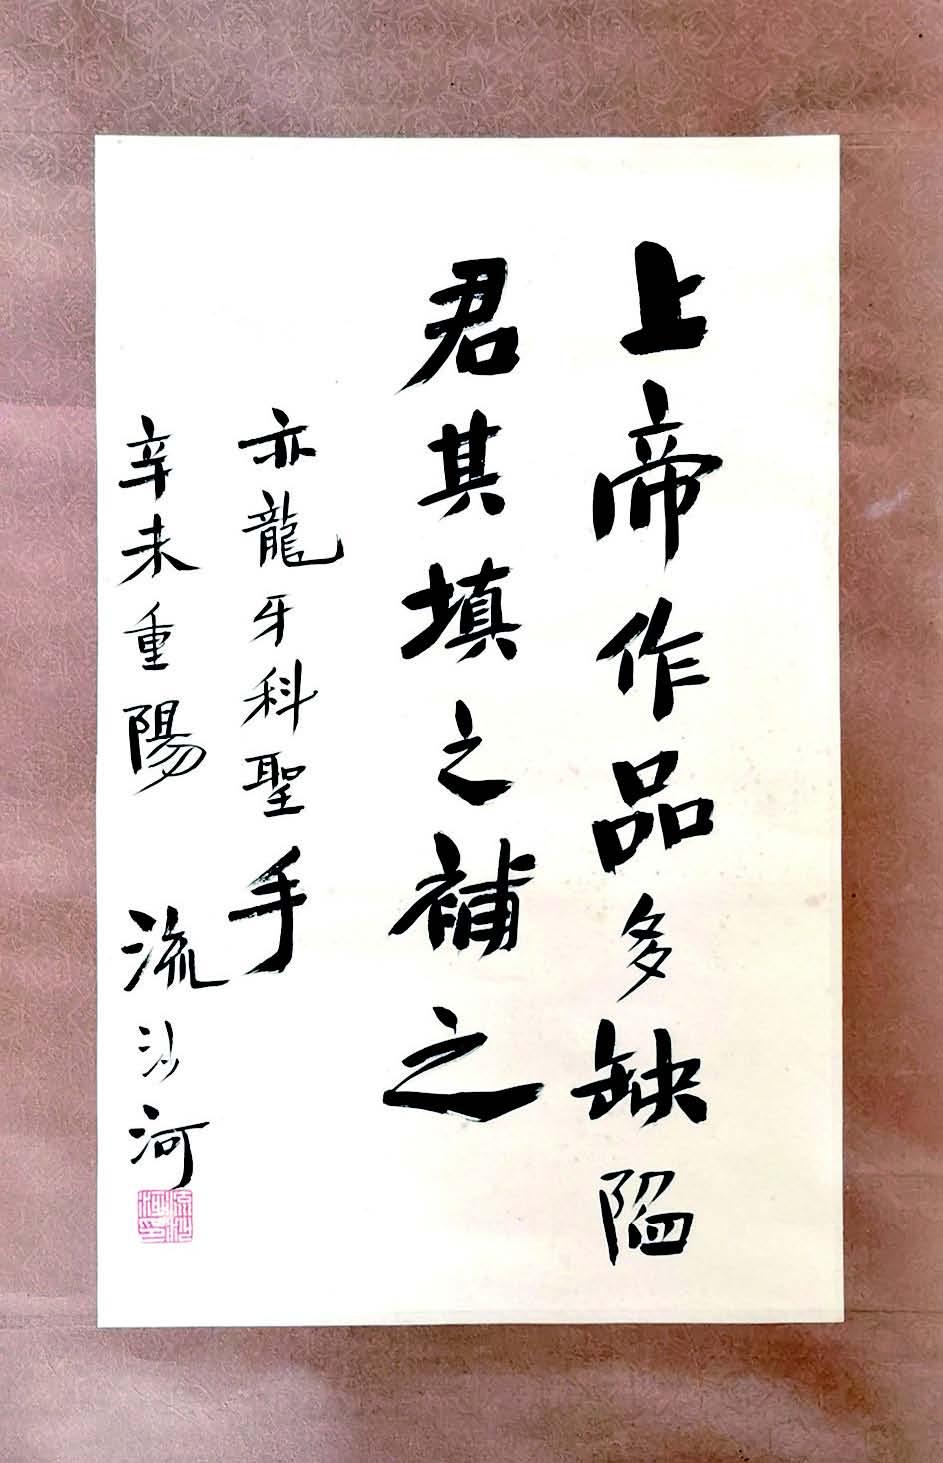 上帝作品多缺陷
君其填之補之
亦龍牙科聖手
辛未重陽 流沙河